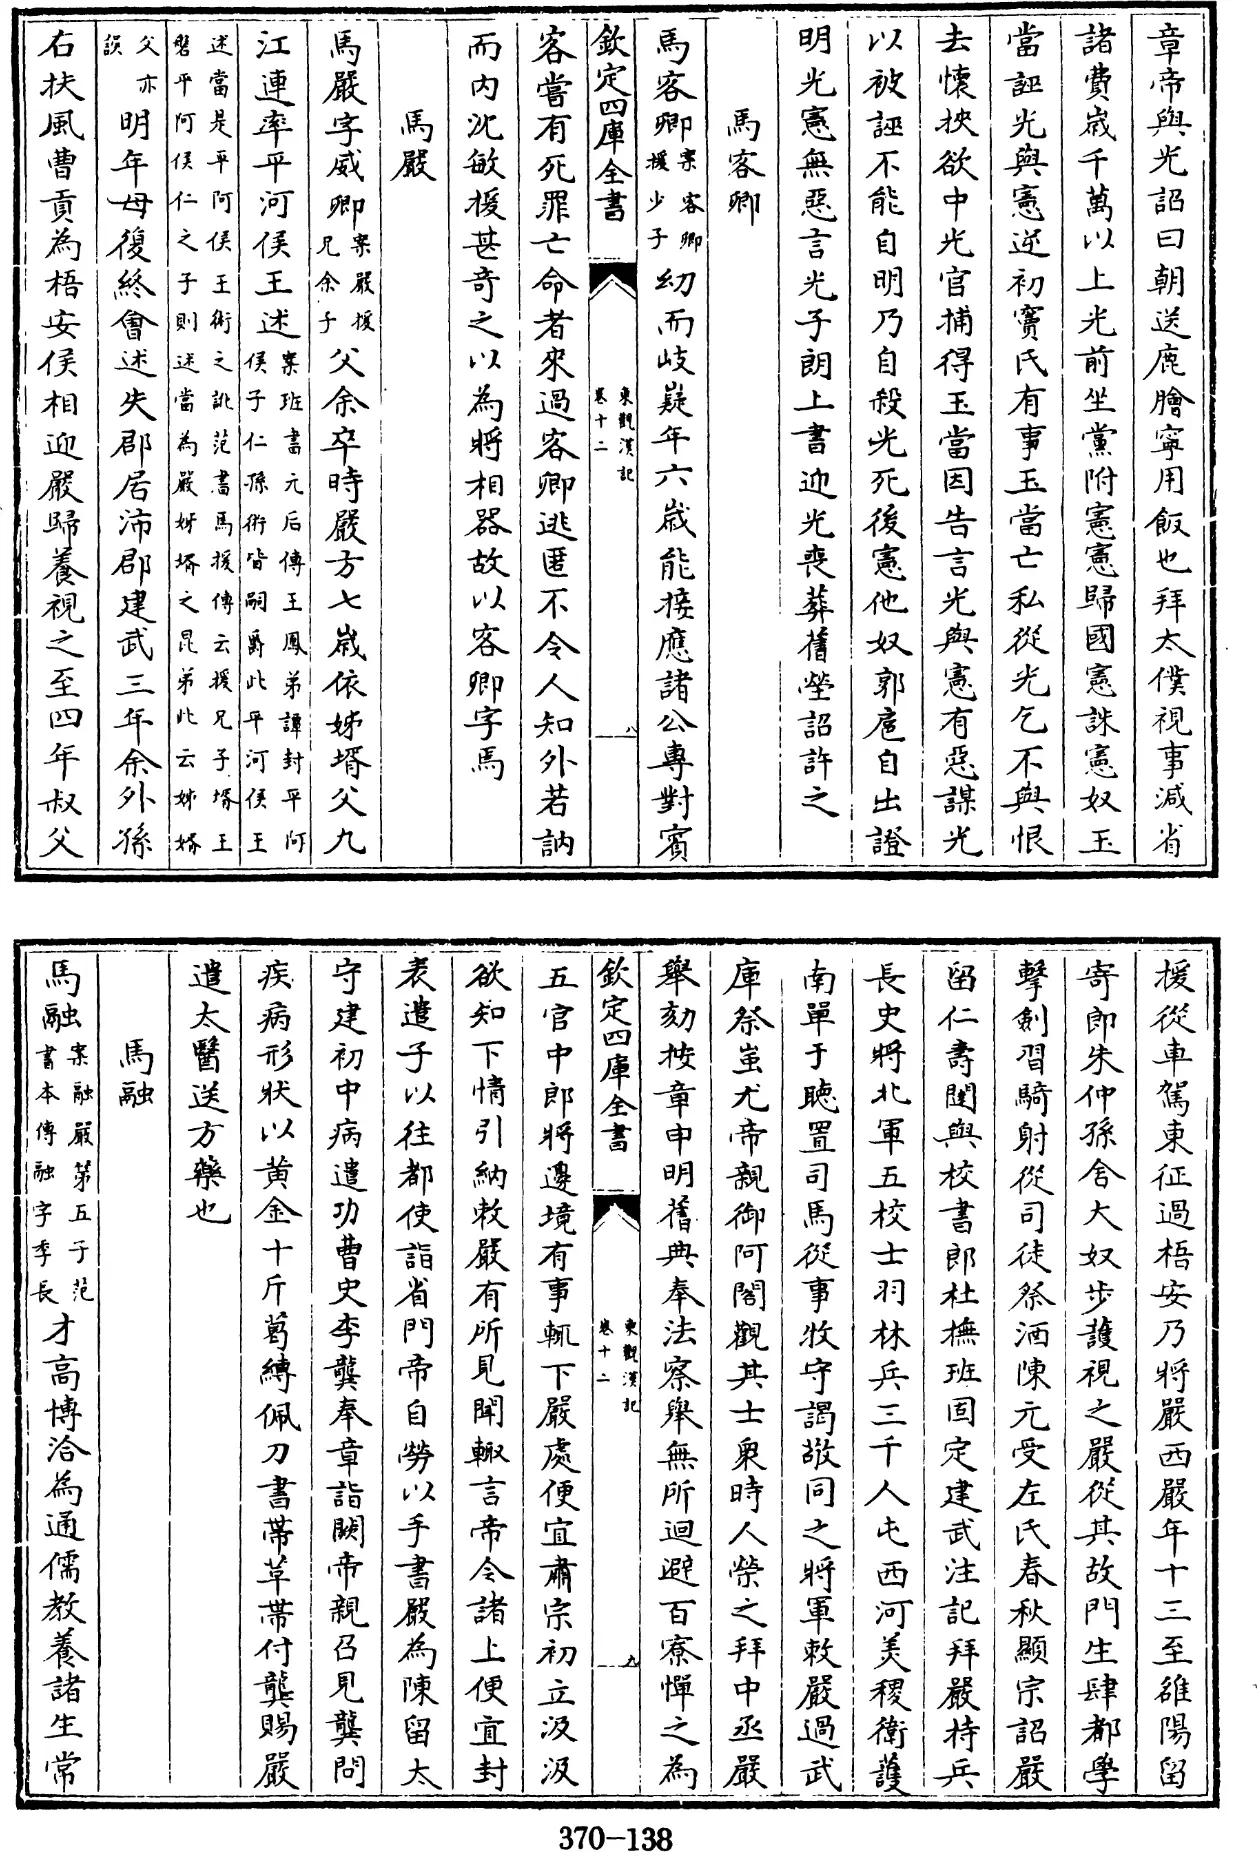 章帝與光詔曰朝送鹿膾寧用飯也拜太僕視事減省
諸費歲千萬以上光前坐黨附憲憲歸國憲誅憲奴玉
當誣光與憲逆初竇氏有事玉當亡私從光乞不與恨
去懷挾欲中光官捕得玉當因告言光與憲有惡謀光
以被誣不能自明乃自殺光死後憲他奴郭扈自出證
明光憲無惡言光子朗上書迎光喪葬舊塋詔許之
馬客卿
馬客卿案客卿援少子幼而岐嶷年六歲能接應諸公專對賓
欽定四庫全書 東觀漢記 卷十二 八
客嘗有死罪亡命者來過客卿逃匿不令人知外若訥
而內沈敏援甚奇之以為將相器故以客卿字焉
馬嚴
馬嚴字威卿案嚴援兄余子父余卒時嚴方七歲依姊壻父九
江連率平河侯王述案班書元后傳王鳳弟譚封平阿侯子仁孫術皆嗣爵此平河侯王
述當是平阿侯王術之訛范書馬援傳云援兄子壻王磐平阿侯仁之子則述當為嚴姊壻之昆弟此云姊壻
父亦誤明年母復終會述失郡居沛郡建武三年余外孫
右扶風曹貢為梧安侯相迎嚴歸養視之至四年叔父
援從車駕東征過梧安乃將嚴西嚴年十三至雒陽留
寄郎朱仲孫舍大奴步護視之嚴從其故門生肆都學
擊劍習騎射從司徒祭酒陳元受左氏春秋顯宗詔嚴
留仁壽闥與校書郎杜撫班固定建武注記拜嚴持兵
長史將北軍五校士羽林兵三千人屯西河美稷衛護
南單于聽置司馬從事牧守謁敬同之將軍敕嚴過武
庫祭蚩尤帝親御阿閣觀其士衆時人榮之拜中丞嚴
舉劾按章申明舊典奉法察舉無所迴避百寮憚之為
欽定四庫全書 東觀漢記 卷十二 九
五官中郎將邊境有事輒下嚴處便宜肅宗初立汲汲
欲知下情引納敕嚴有所見聞輙言帝令諸上便宜封
表遣子以往都使詣省門帝自勞以手書嚴為陳留太
守建初中病遣功曹史李龔奉章詣闕帝親召見龔問
疾病形狀以黃金十斤葛縛佩刀書帶革帶付龔賜嚴
遣太醫送方藥也
馬融
馬融案融嚴第五子范書本傳融字季長才高博洽為通儒教養諸生常
370-138